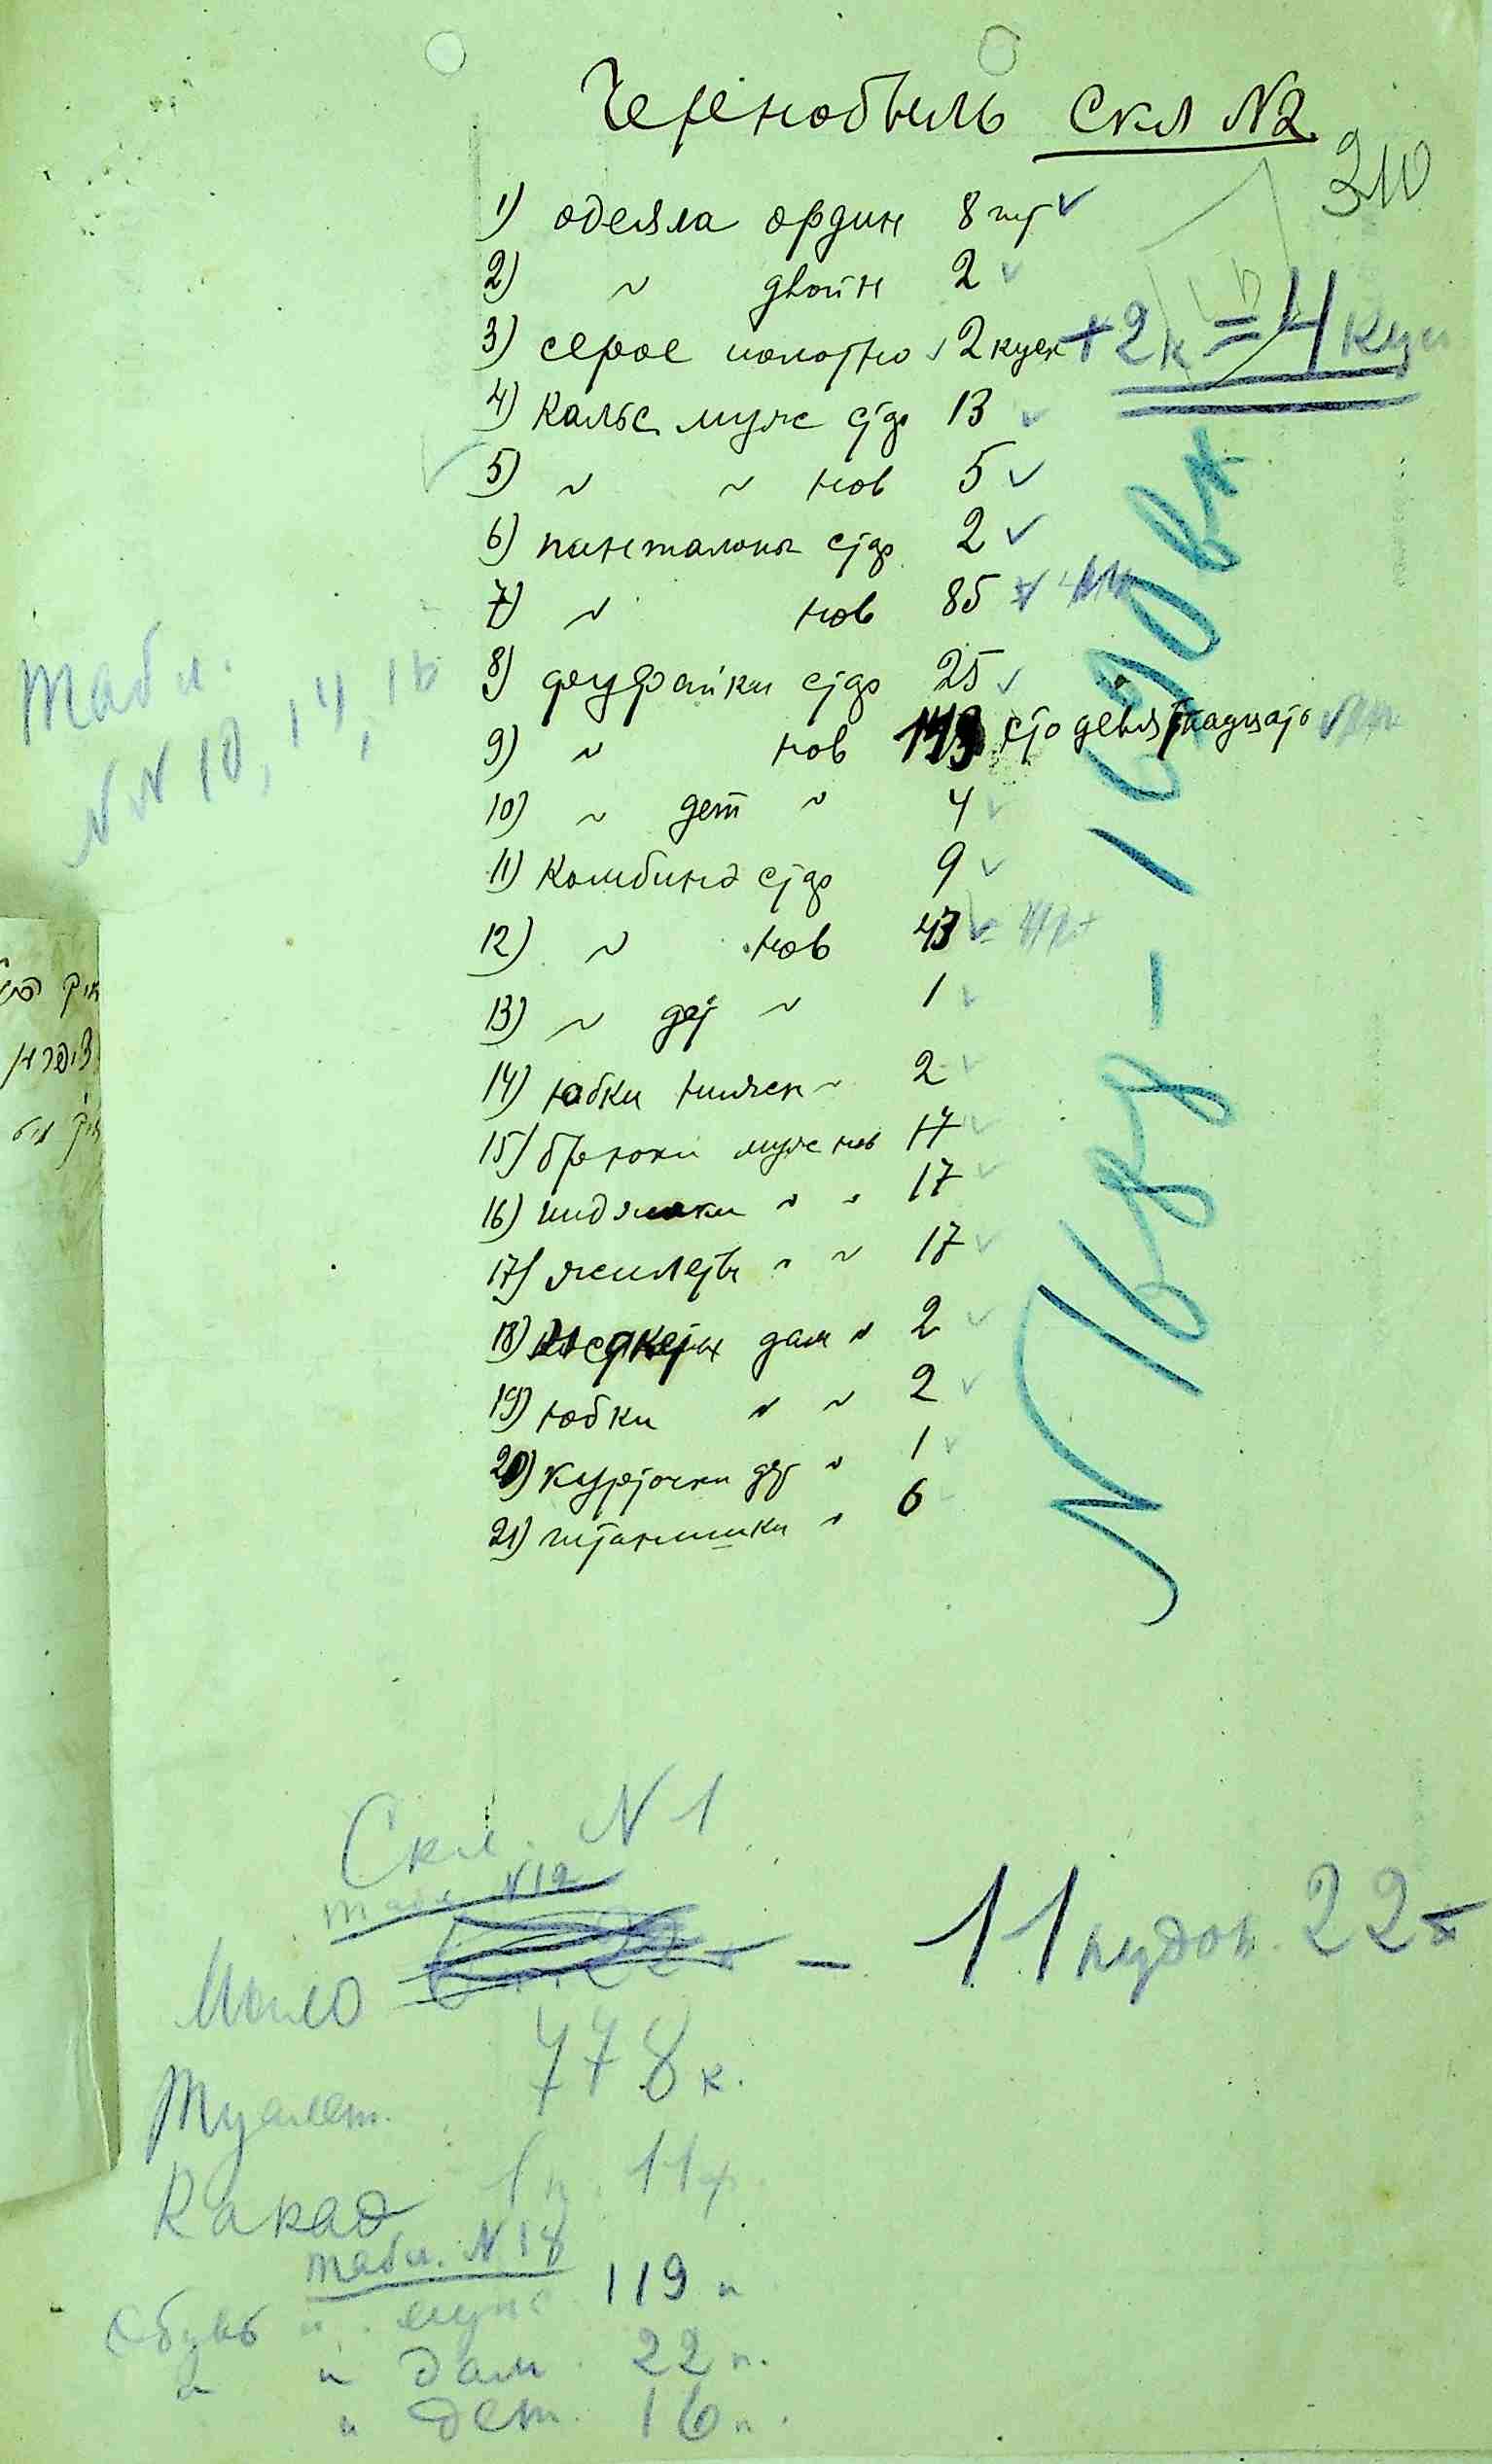 Чернобыль Скл N2
310
1) одеяла ордин 8 шт
2) ~ двойн 2
3) серое полотно 2 куск +2к = 4 куск
4) Кальс муж стар 13
5) ~ ~ нов 5
6) панталоны стар 2
7) ~ нов 85
8) фуфайки стар 25
9) ~ нов сто девятнадцать
10) ~ дет ~ 4
11) Комбинэ стар 9
12) ~ нов 43
13) ~ дет ~ 1
14) юбки нижн ~ 2
15) брюки муж нов 17
16) пиджаки " " 17
17) жилеты " ~ 17
18) жакеты дам " 2
19) юбки " ~ 2
20) курточки дет " 1
21) штанишки " 6
Табл.
NN 10, 14, 16
N 16
Скл. N 1
табл N12
Мыло – 11 пудов 22
Туалет. 778 к.
Какао 1 п. 11 ф.
табл. N 18
Обувь н. муж. 119 п
" " дам. 22 п.
" дет. 16 п.